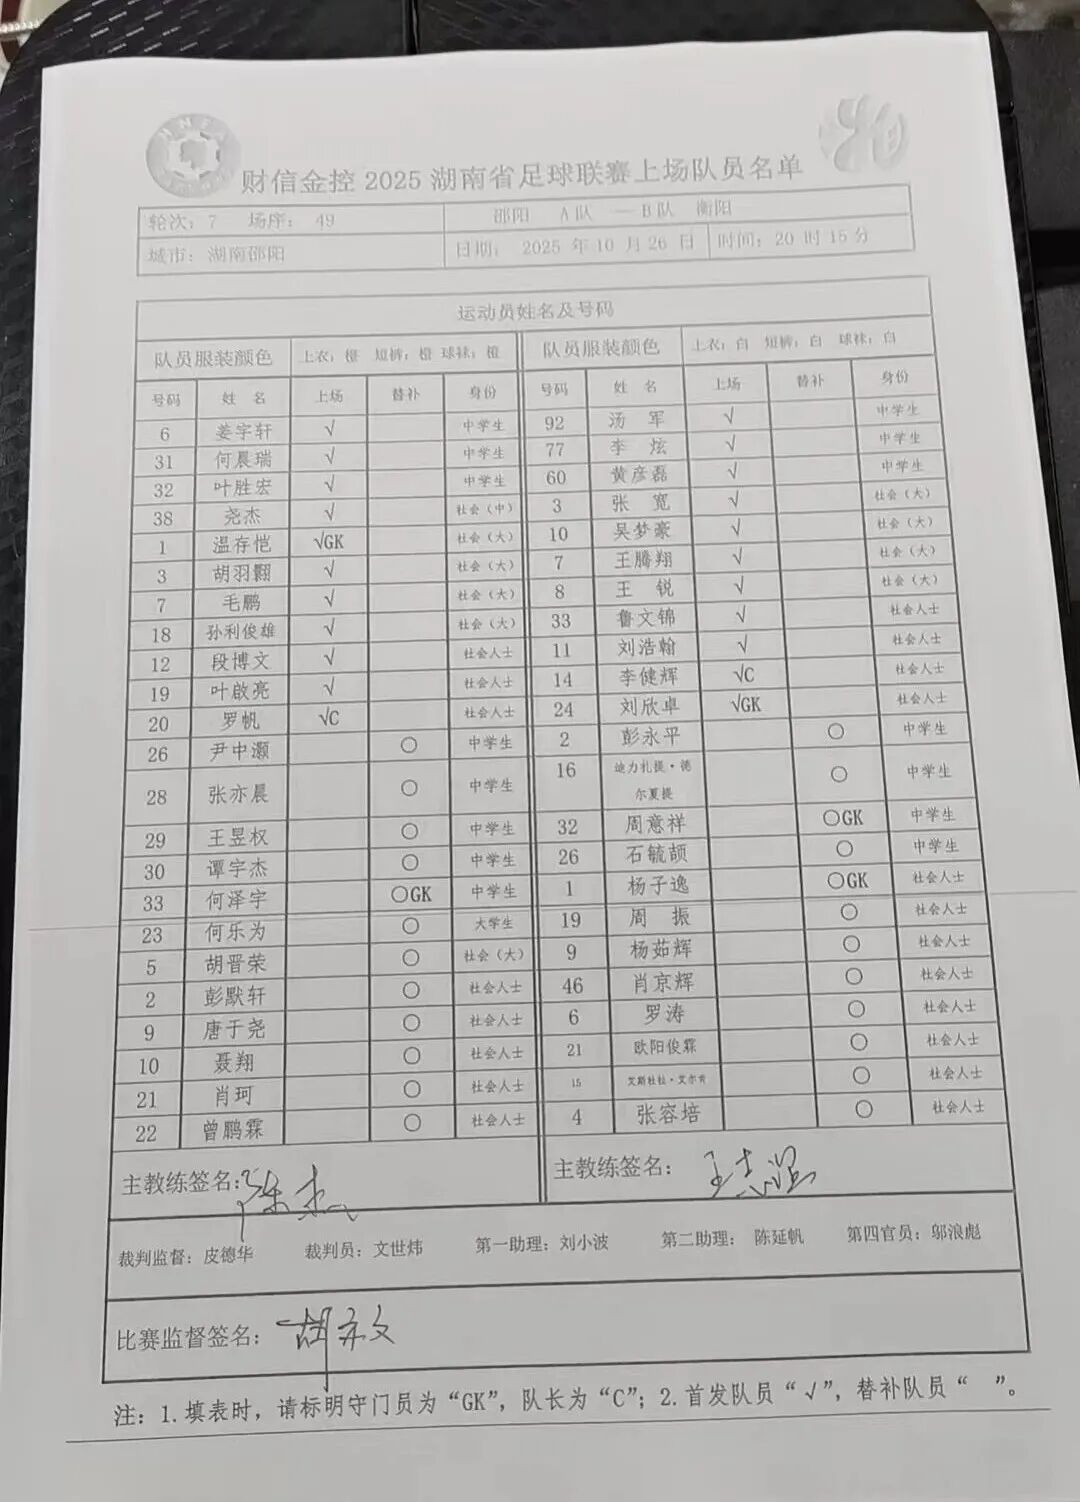 财信金控 2025 湖南省足球联赛上场队员名单
轮次：7 场序： 49 邵阳 A队 —B队 衡阳
城市：湖南邵阳 日期： 2025 年 10 月 26 日 时间：20 时 15 分
运动员姓名及号码
队员服装颜色 上衣：橙 短裤：橙 球袜：橙 队员服装颜色 上衣：白 短裤：白 球袜：白
号码 姓 名 上场 替补 身份 号码 姓 名 上场 替补 身份
6 姜宇轩 √ 中学生 92 汤 军 √ 中学生
31 何晨瑞 √ 中学生 77 李 炫 √ 中学生
32 叶胜宏 √ 中学生 60 黄彦磊 √ 中学生
38 尧杰 √ 社会（中） 3 张 宽 √ 社会（大）
1 温存恺 √GK 社会（大） 10 吴梦豪 √ 社会（大）
3 胡羽翾 √ 社会（大） 7 王腾翔 √ 社会（大）
7 毛鹏 √ 社会（大） 8 王 锐 √ 社会（大）
18 孙利俊雄 √ 社会（大） 33 鲁文锦 √ 社会人士
12 段博文 √ 社会人士 11 刘浩翰 √ 社会人士
19 叶啟亮 √ 社会人士 14 李健辉 √C 社会人士
20 罗帆 √C 社会人士 24 刘欣卓 √GK 社会人士
26 尹中灏 ○ 中学生 2 彭永平 ○ 中学生
28 张亦晨 ○ 中学生 16 迪力扎提·德尔夏提 ○ 中学生
29 王昱权 ○ 中学生 32 周意祥 ○GK 中学生
30 谭宇杰 ○ 中学生 26 石毓颉 ○ 中学生
33 何泽宇 ○GK 中学生 1 杨子逸 ○GK 社会人士
23 何乐为 ○ 大学生 19 周 振 ○ 社会人士
5 胡晋荣 ○ 社会（大） 9 杨茹辉 ○ 社会人士
2 彭默轩 ○ 社会人士 46 肖京辉 ○ 社会人士
9 唐于尧 ○ 社会人士 6 罗涛 ○ 社会人士
10 聂翔 ○ 社会人士 21 欧阳俊霖 ○ 社会人士
21 肖珂 ○ 社会人士 15 艾斯杜拉·艾尔肯 ○ 社会人士
22 曾鹏霖 ○ 社会人士 4 张容培 ○ 社会人士
主教练签名： 主教练签名：
裁判监督：皮德华 裁判员：文世炜 第一助理：刘小波 第二助理： 陈延帆 第四官员：邬浪彪
比赛监督签名：
注：1.填表时，请标明守门员为“GK”，队长为“C”；2.首发队员“√”，替补队员“ ”。